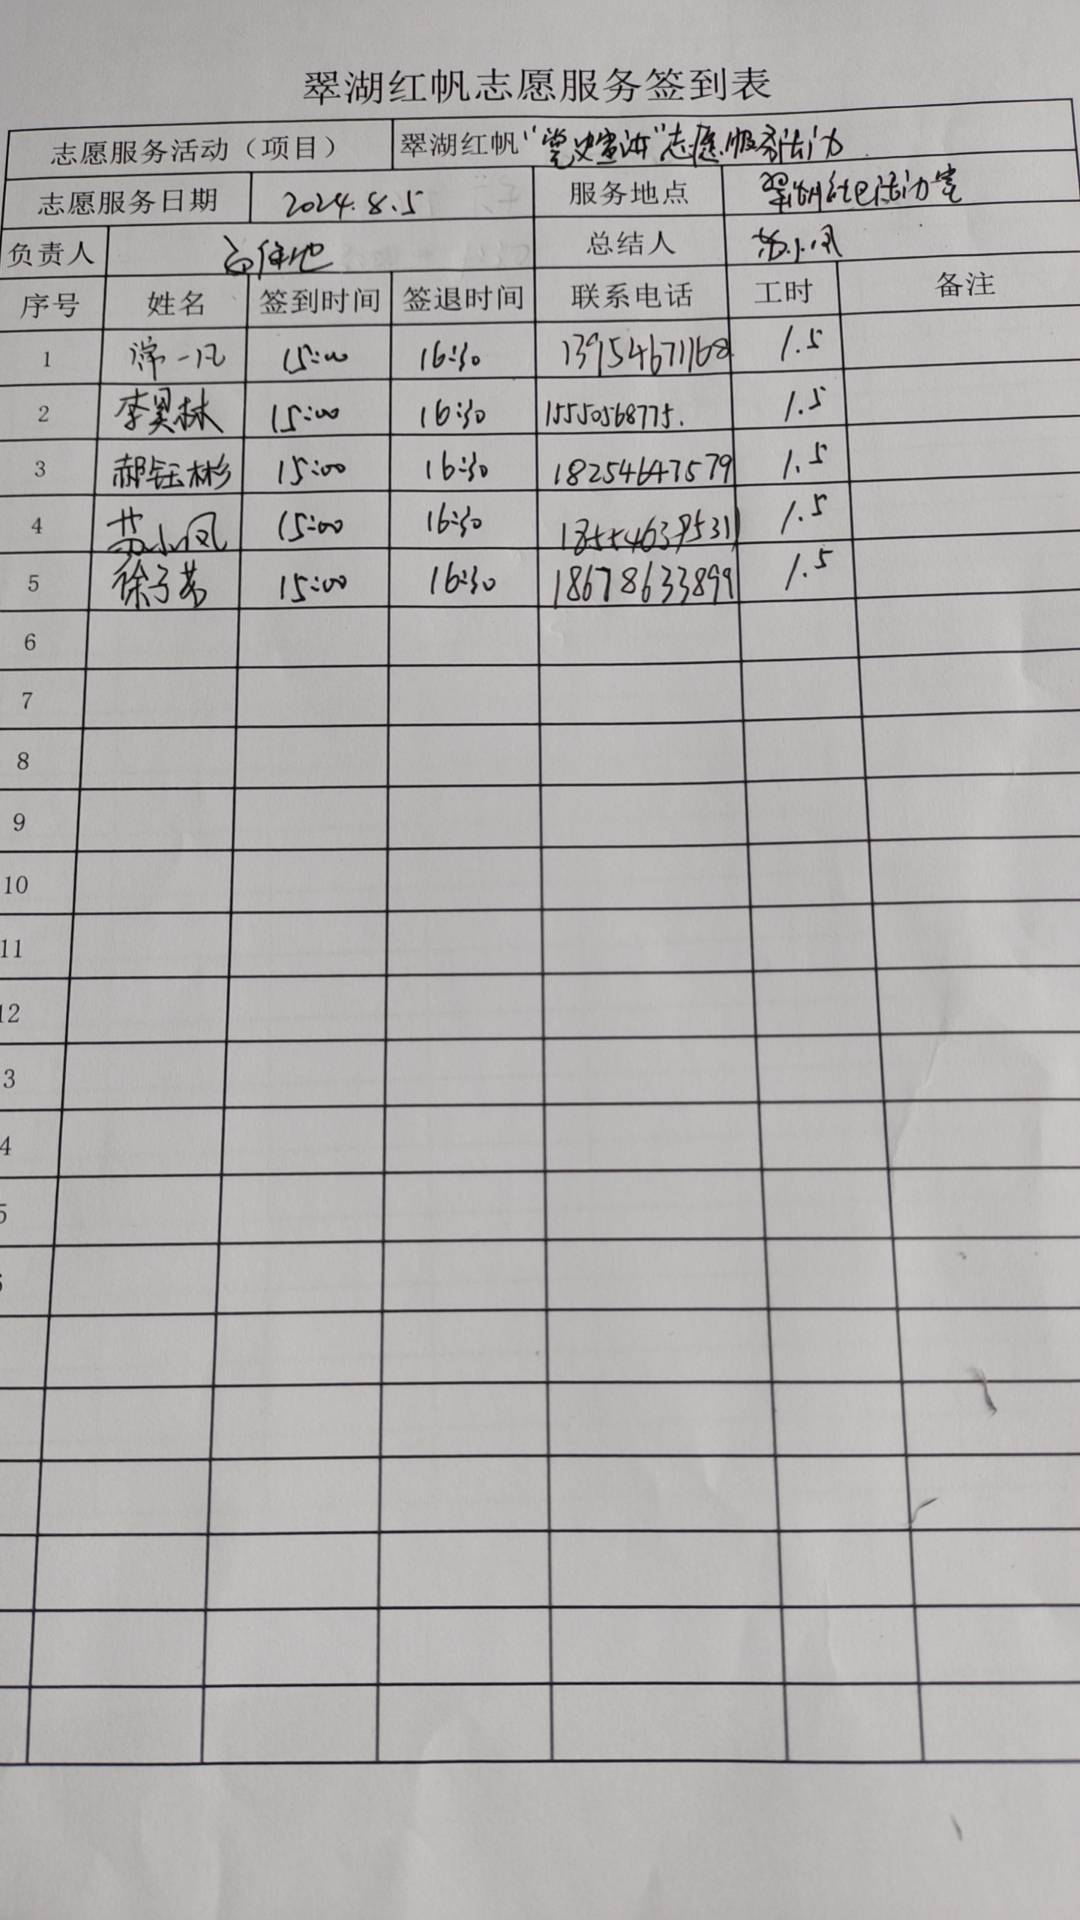 翠湖红帆志愿服务签到表
志愿服务活动（项目） 翠湖红帆“党史宣讲”志愿服务活动
志愿服务日期 2024.8.5 服务地点 翠湖社区活动室
负责人 总结人 苏小凤
序号 姓名 签到时间 签退时间 联系电话 工时 备注
1 一凡 15:00 16:30 13954671168 1.5
2 李昊林 15:00 16:30 15550568775. 1.5
3 郝钰彬 15:00 16:30 18254647579 1.5
4 苏小凤 15:00 16:30 1.5
5 徐子芳 15:00 16:30 18678633899 1.5
6
7
8
9
10
11
12
3
4
5